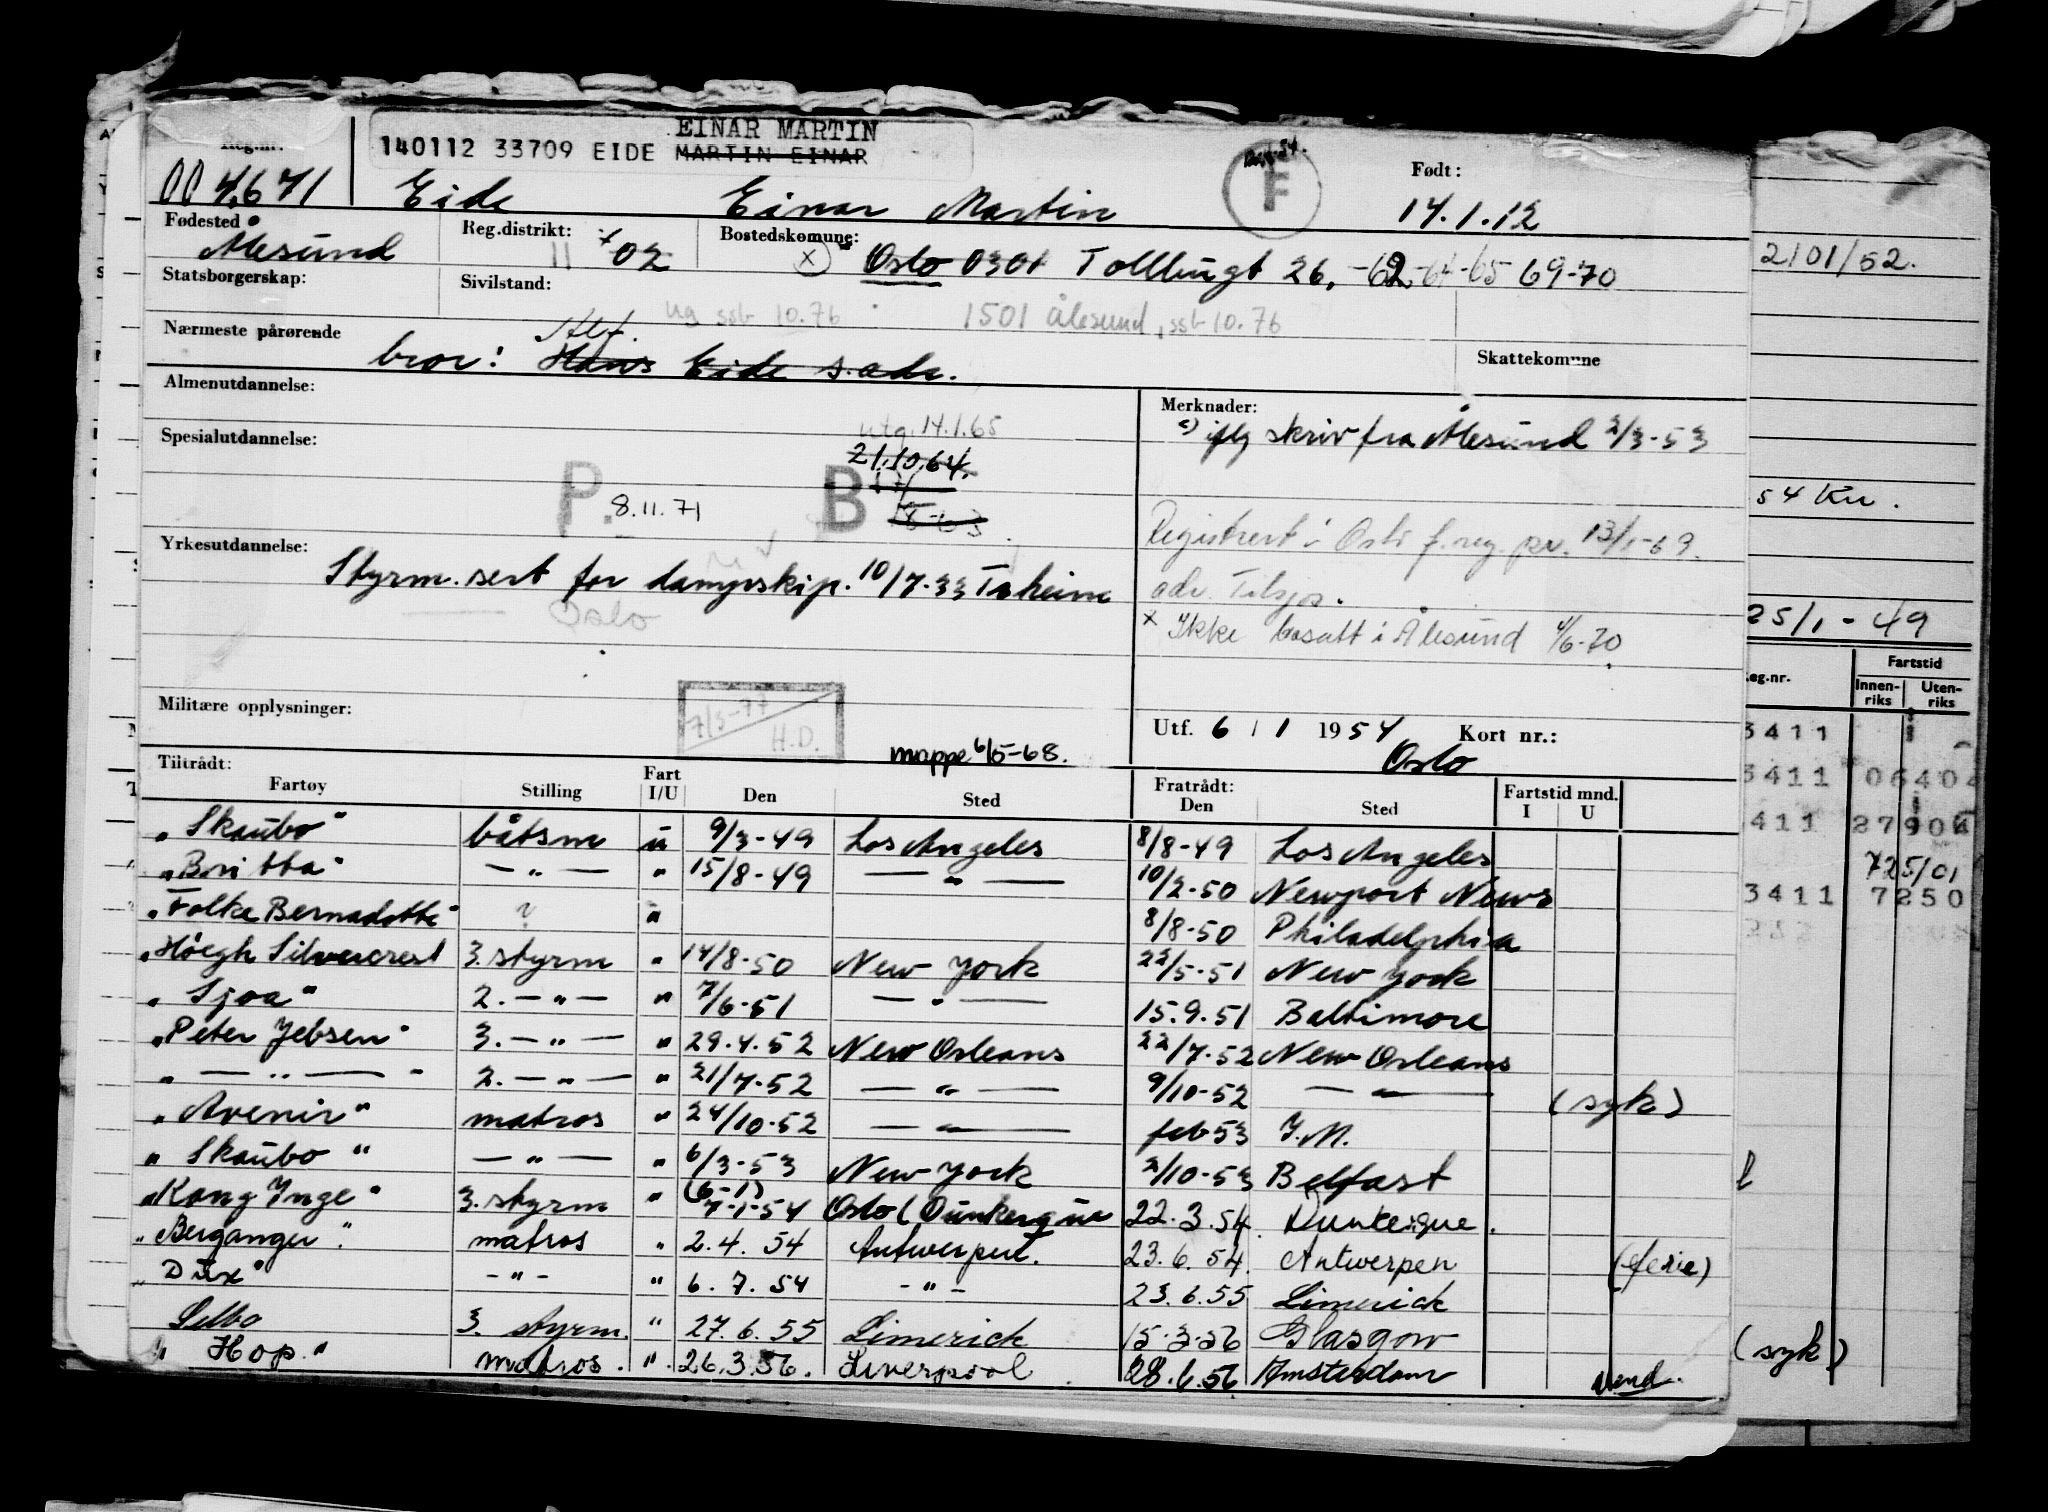 EINAR MARTIN
140112 33709 EIDE MARTIN EINAR
Reg.nr.
00 4671 Eide Einar Martin F Født: 14.1.12
Fødested Ålesund Reg.distrikt: 02 Bostedskomune: Oslo 0301 Tollbugt 26, -62-64-65 69-70
Statsborgerskap: Sivilstand: ug ssb 10.76 1501 Ålesund, ssb 10.76
Nærmeste pårørende Alf. Skattekomune
bror: Hans Eide s.adr.
Almenutdannelse: Merknader:
iflg skriv fra Ålesund 2/3-53
Spesialutdannelse: utg. 14.1.65
21.10.64.
P. 8.11.71 B
Registrert i Oslo f.reg. pr. 13/1-69.
Yrkesutdannelse: Styrm. sert for dampskip. 10/7.33 Tr.heim
Oslo
x Ikke bosatt i Ålesund 4/6-70
Militære opplysninger: 7/3-77 H.D. mappe 6/5-68.
Utf. 6 / 1 1954 Kort nr.:
Oslo
Tiltrådt: Fratrådt: Fartstid mnd.
Fartøy Stilling Fart I/U Den Sted Den Sted I U
"Skaubo" båtsm u 9/3-49 Los Angeles 8/8-49 Los Angeles
"Britta" — " — " 15/8-49 — " — 10/2-50 Newport News
"Folke Bernadotte" ? " 8/8-50 Philadelphia
"Höegh Silvercrest 3. styrm " 14/8-50 New York 22/5-51 New York
"Sjoa" 2. — " — " 7/6-51 — " — 15.9.51 Baltimore
"Peter Jebsen" 3. — " — " 29.4.52 New Orleans 22/7-52 New Orleans
" — " — " 2. — " — " 21/7-52 — " — 9/10-52 — " — (syk)
"Avenir" matros " 24/10-52 — " — feb 53 I.M.
"Skaubo" — " — " 6/3-53 New York 2/10-53 Belfast
"Kong Inge" 3. styrm " (6-1) 7-1-54 Oslo (Dunkerque 22.3.54. Dunkerque.
"Berganger". matros " 2.4.54 Antwerpen. 23.6.54. Antwerpen (ferie)
"Dux" - " - " 6.7.54 - " - 23.6.55 Limerick
Selbo 3. styrm. " 27.6.55 Limerick 15.3.56 Glasgow (syk)
"Hop." matros. " 26.3.56. Liverpool 28.6.56 Amsterdam vend.
2101/52.
54 Kr.
25/1-49
eg.nr. Fartstid
Innen-riks Uten-riks
3411
3411 06404
411
725/01
3411 7250